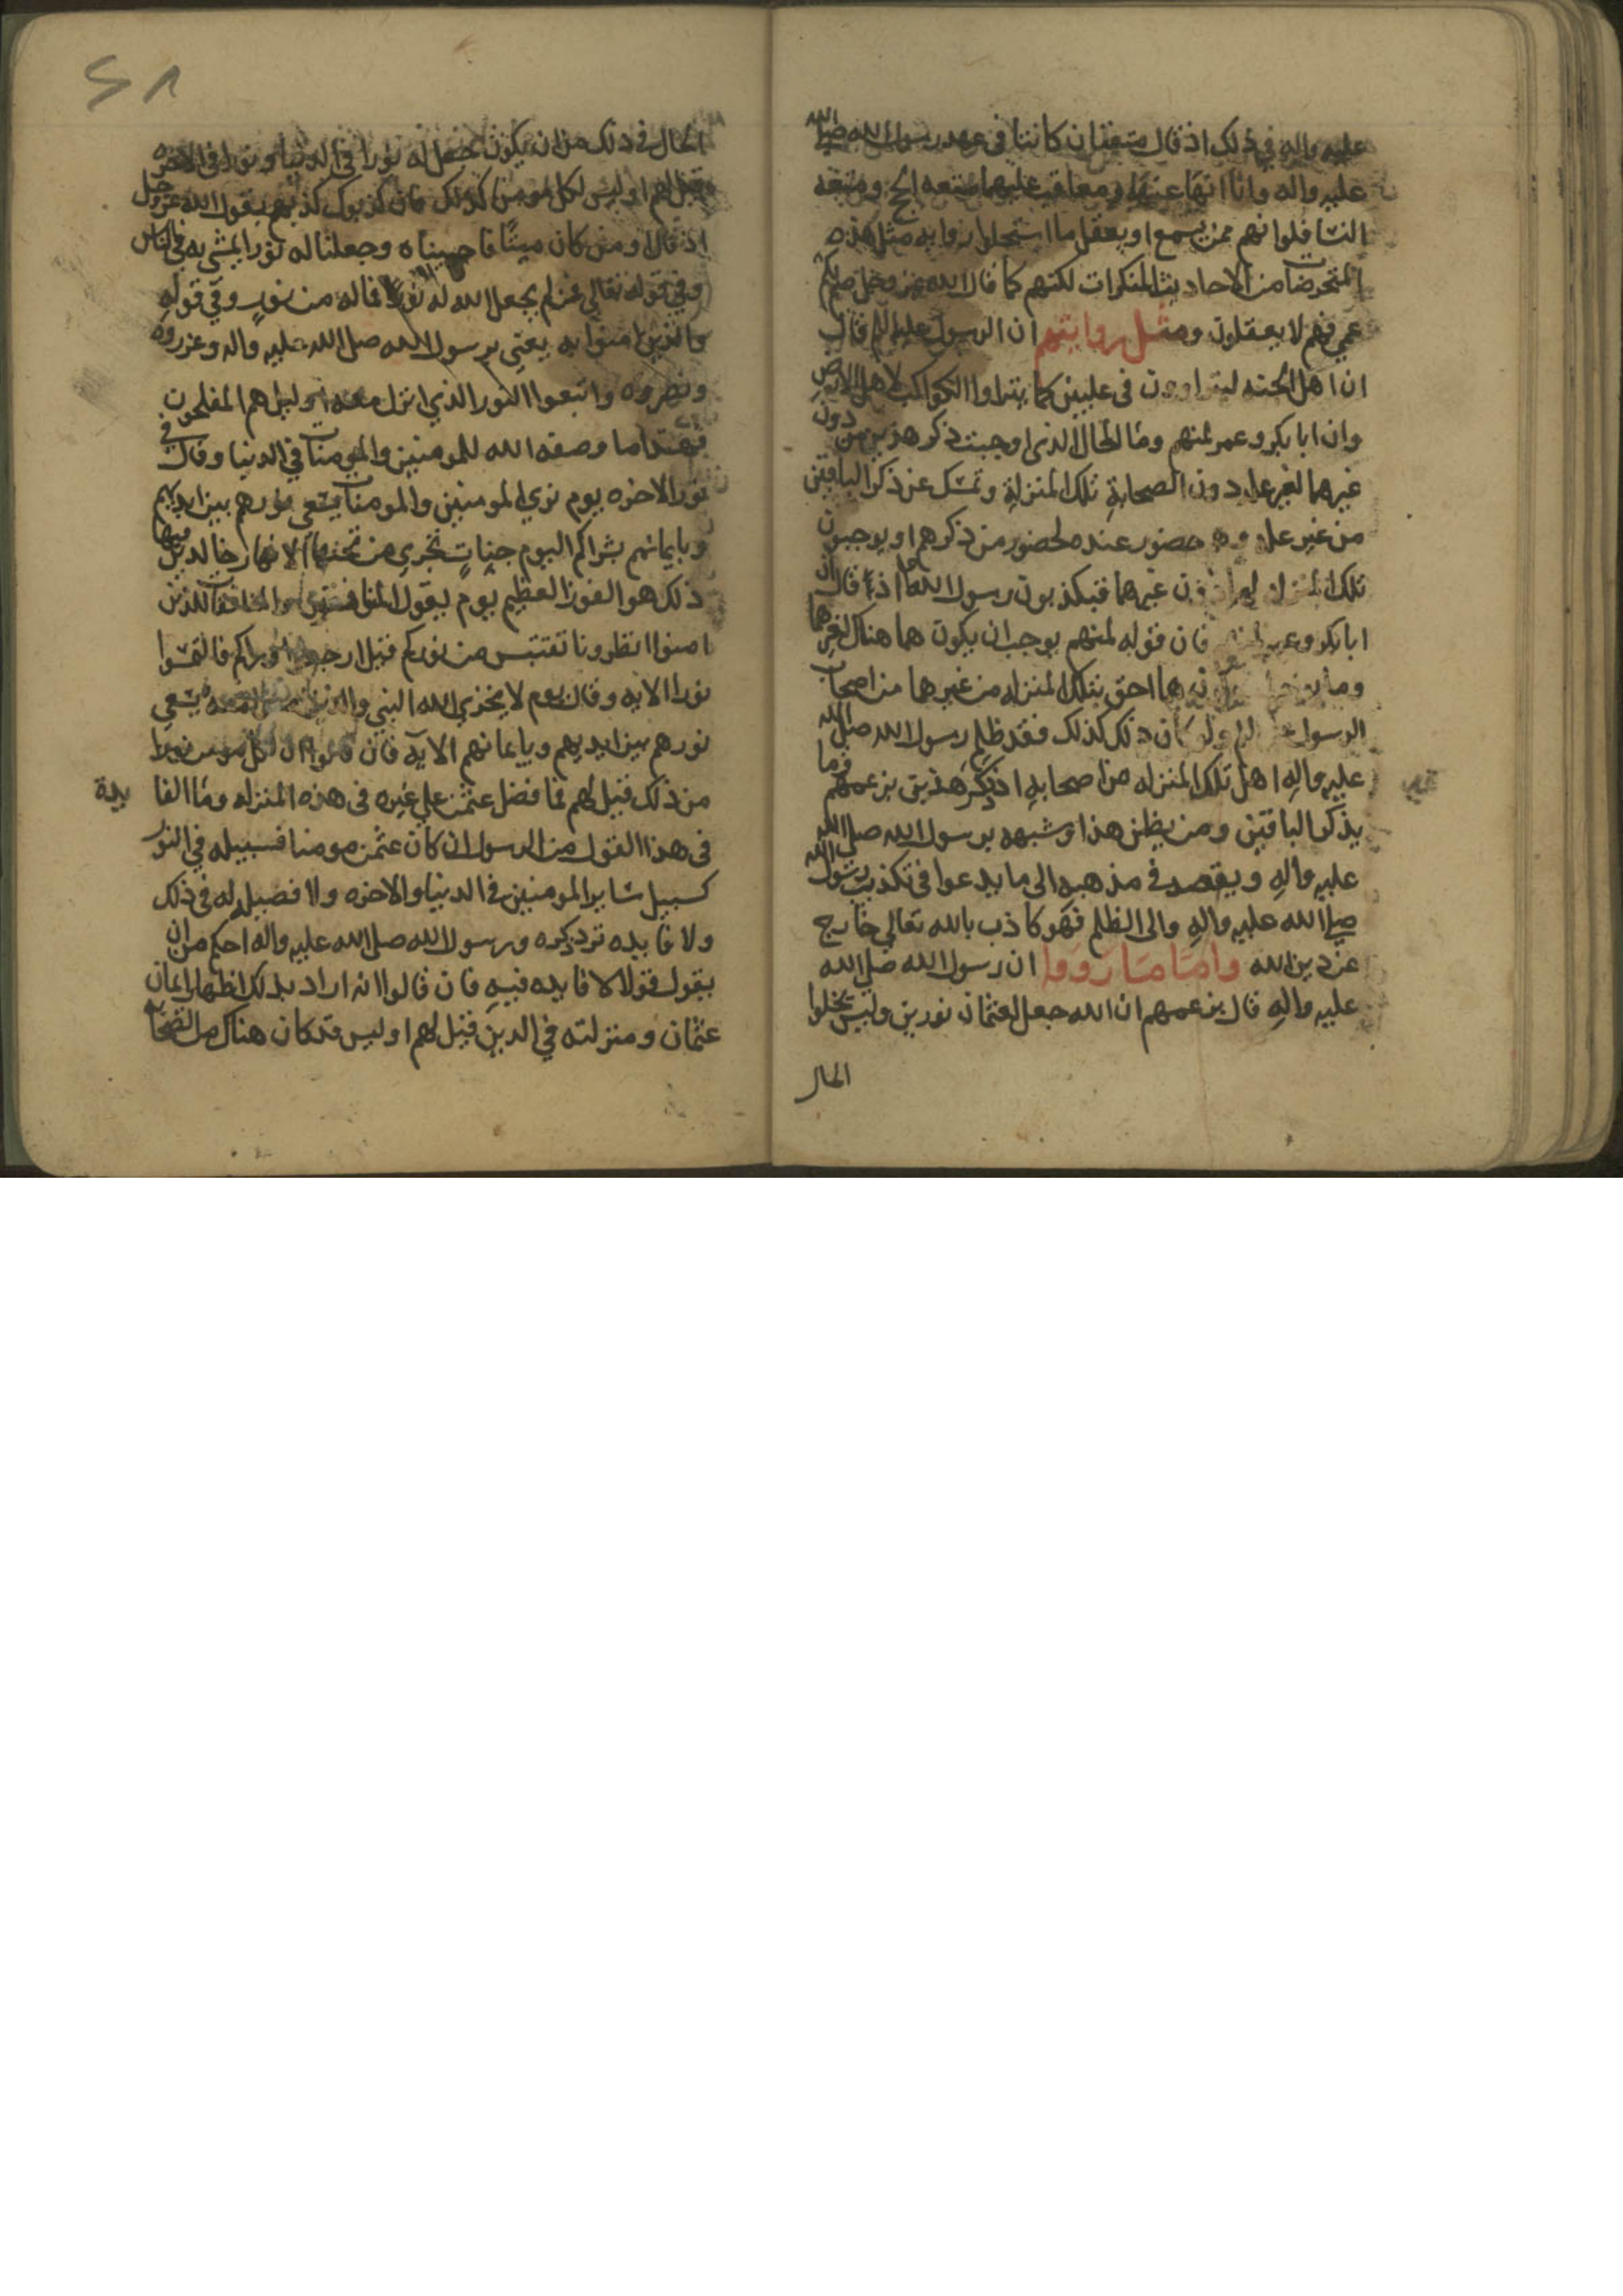 عليه واله في ذلك اذ قال متعتان كانتا في عهد رسول الله صلى الله
عليه واله وانا انها عنهما ومعاقب عليهما متعه الحج ومتعه
النسا فلوانهم ممن يسمع او يعقل ما استحلوا روايه مثل هذه
المتخرضات من الاحاديث المنكرات لكنهم كما قال الله عز وجل صم بكم
عمي فهم لا يعقلون ومثل روايتهم ان الرسول عليه السلم قال
ان اهل الجنه ليتراوون في عليين كما يتراوا الكواكب لاهل الارض
وان ابا بكر وعمر لمنهم وما الحال الذي اوجبت ذكر هذين من دون
غيرهما لغير عله دون الصحابةِ تلك المنزلةِ وتمسك عن ذكر الباقين
من غير عله حضور عنده لحضور من ذكرهم او يوجبون
تلك دون غيرهما فيكذبون رسول الله اذا قال ان
ابا بكر وعمر فان قوله لمنهم يوجب ان يكون هما هناك لغيرهما
هما احق بتلك المنزله من غيرهما من اصحاب
الرسول ولو كان ذلك كذلك فقد ظلم رسول الله صلى الله
عليه والهِ اهل تلك المنزله من اصحابهِ اذ ذكر هذين بزعمهم فما
يذكر الباقين ومن يظن هذا وشبهه برسول الله صلى الله
عليه والهِ ويقصد في مذهبه الى ما يدعوا في تكذيب رسول الله
صلى الله عليه والهِ والى الظلم فهو كاذب بالله تعالى خارج
عن دين الله واما ما رووا ان رسول الله صلى الله
عليه والهِ قال بزعمهم ان الله جعل لعثمان نورين وليس يخلوا
الحال
٢٨
الحال في ذلك من ان يكون جعل له نورا في الدنيا ونورا في الاخره
قيل لهم اوليس لكل مومن كذلك فان كذبوك كذبهم بقول الله عز وجل
اذ قال اومن كان ميتًا فاحييناه وجعلنا له نورا يمشي به في الناس
وفي قوله تعالى فمن لم يجعل الله له نورًا فما له من نورٍ وفي قوله
والذين امنوا به يعني برسول الله صلى الله عليه واله وعزروه
ونصروه واتبعوا النور الذي انزل معه اوليك هم المفلحون
فهذا ما وصفه الله للمومنين والمومنات في الدنيا وقال في
نور الاخره يوم تري المومنين والمومنات يسعى نورهم بين ايديهم
وبايمانهم بشراكم اليوم جناتٍ تجري من تحتها الانهار خالدين فيها
ذلك هو الفوز العظيم يوم يقول المنافقون والمنافقات للذين
امنوا انظرونا نقتبس من نوركم قيل ارجعوا وراكم فالتمسوا
نورا الايه وقال يوم لا يخزي الله النبي والذين امنوا معه يسعى
نورهم بين ايديهم وبايمانهم الايةِ فان قالوا ان لكل مومن نورا
من ذلك قيل لهم فما فضل عثمن علي غيره في هذه المنزله وما الفا
يدة
في هذا القول من الرسول ان كان عثمن مومنا فسبيله في النور
كسبيل ساير المومنين في الدنيا والاخره ولا فضيله له في ذلك
ولا فايده تردد ذكره ورسول الله صلى الله عليه واله احكم من ان
يقول قولا لا فايده فيهِ فان قالوا انه اراد بذلك اظهار ايمان
عثمان ومنزلته في الدين قيل لهم اوليس قد كان هناك من الصحابه